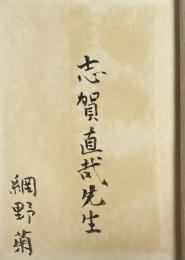 志賀直哉先生
網野菊